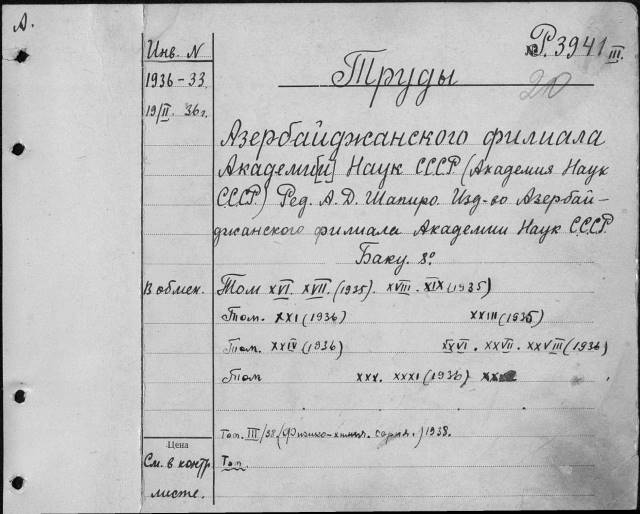 А.
Инв. N
№ Р.3941 III.
20
1936-33
19/II. 36г.
Труды
Азербайджанского филиала
Академи[и] Наук СССР (Академия Наук
СССР) Ред. А. Д. Шапиро. Изд-во Азербай-
джанского филиала Академии Наук СССР.
Баку. 8°
В обмен.
Том XVI. XVII. (1935). XVIII - XIX (1935)
Том. XXI (1936) XXIII (1935)
Том. XXIV (1936) XXVI. XXVII. XXVIII (1936)
Том XXX. XXXI (1936)
Том. III/38 (Физико-химич. серия.) 1938.
Цена
См. в контр.
листе.
Том.